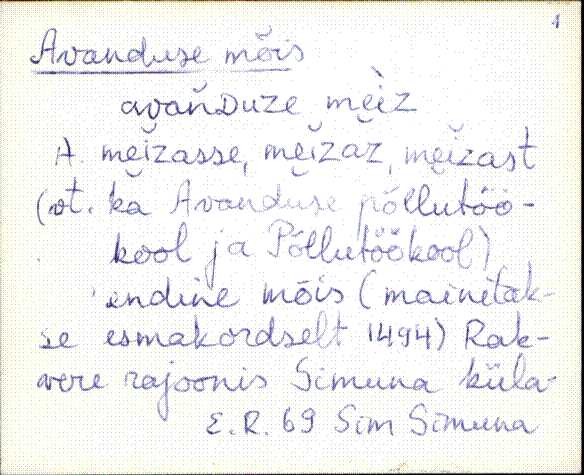 1
Avanduse mõis
avaǹDuze mèiz
A. mĕizasse, mĕizăz, mĕizast
(vt. ka Avanduse põllutöö-
kool ja Põllutöökool)
endine mõis (mainitak-
se esmakordselt 1494) Rak-
vere rajoonis Simuna küla-
E. R. 69 Sim Simuna